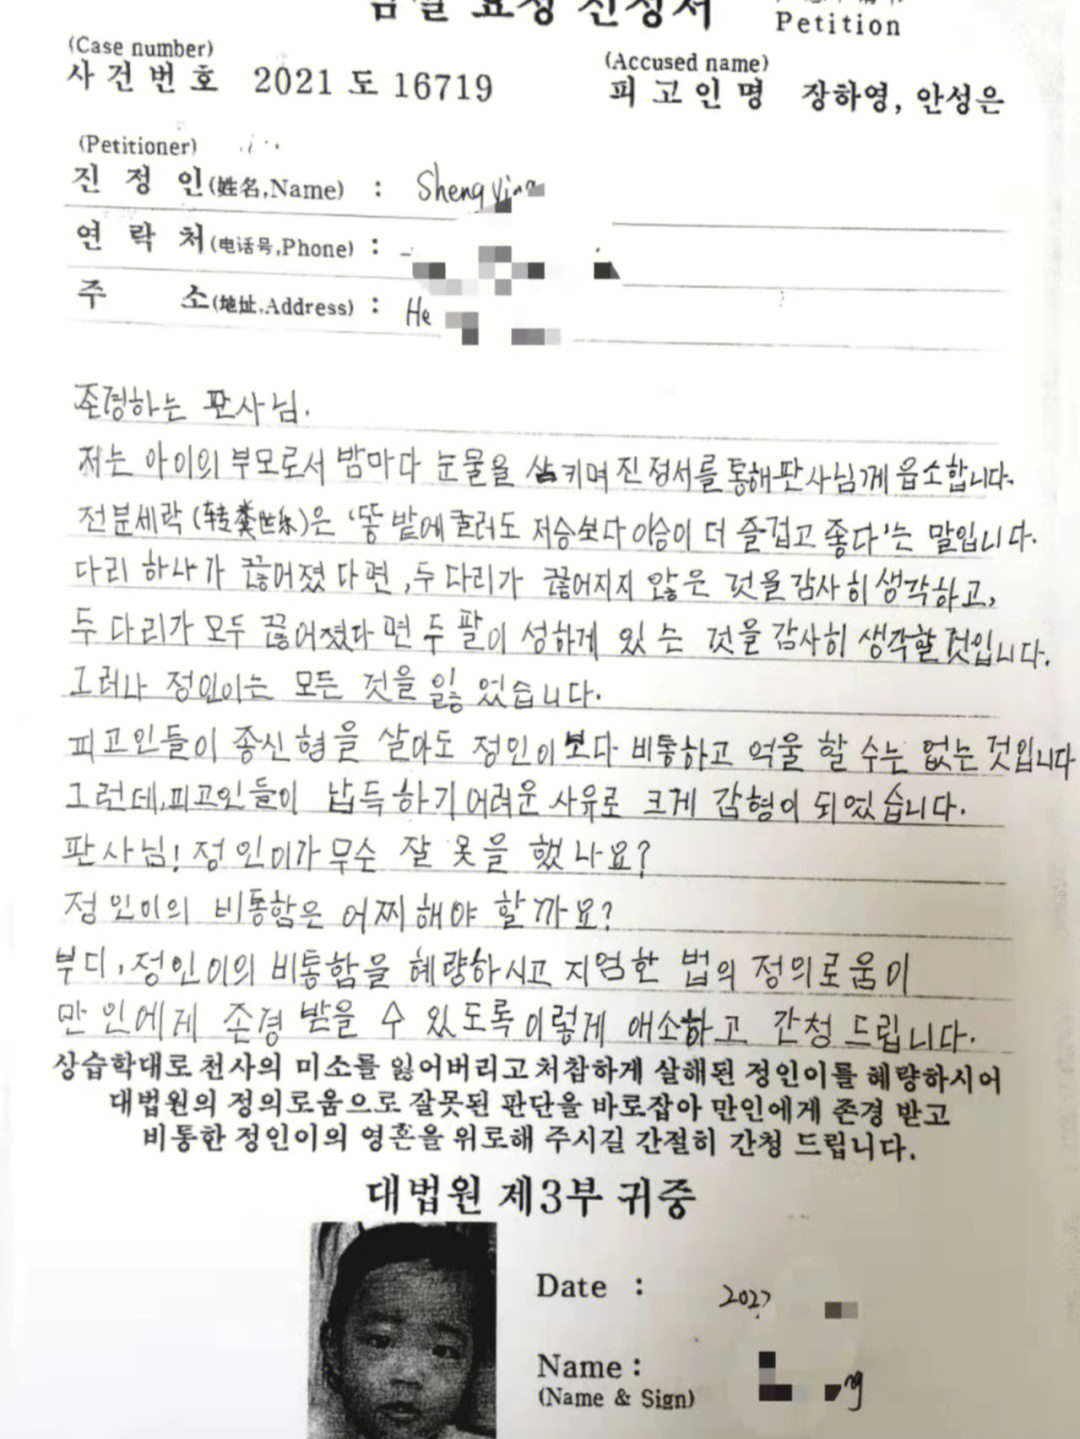 요청 진정서
Petition
(Case number)
사건번호 2021 도 16719
(Accused name)
피고인명 장하영, 안성은
(Petitioner)
진정인(姓名,Name) : Sheng
연락처(电话号,Phone) :
주 소(地址,Address) : He
존경하는 판사님.
저는 아이의 부모로서 밤마다 눈물을 삼키며 진정서를 통해 판사님께 읍소합니다.
전분세락(转粪世乐)은 '똥 밭에 굴러도 저승보다 이승이 더 즐겁고 좋다'는 말입니다.
다리 하나가 끊어졌다면, 두 다리가 끊어지지 않은 것을 감사히 생각하고,
두 다리가 모두 끊어졌다면 두 팔이 성하게 있는 것을 감사히 생각할 것입니다.
그러나 정인이는 모든 것을 잃었습니다.
피고인들이 종신형을 살아도 정인이보다 비통하고 억울 할 수는 없는 것입니다
그런데, 피고인들이 납득하기 어려운 사유로 크게 감형이 되었습니다.
판사님! 정인이가 무슨 잘못을 했나요?
정인이의 비통함은 어찌해야 할까요?
부디, 정인이의 비통함을 혜량하시고 지엄한 법의 정의로움이
만인에게 존경 받을 수 있도록 이렇게 애소하고 간청 드립니다.
상습학대로 천사의 미소를 잃어버리고 처참하게 살해된 정인이를 혜량하시어
대법원의 정의로움으로 잘못된 판단을 바로잡아 만인에게 존경 받고
비통한 정인이의 영혼을 위로해 주시길 간절히 간청 드립니다.
대법원 제3부 귀중
Date :
Name :
(Name & Sign)